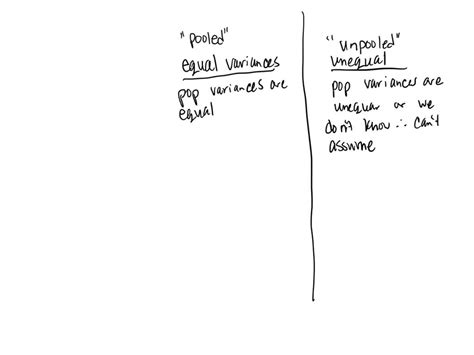 "pooled"
equal variances
pop variances are
equal
"unpooled"
unequal
pop variances are
unequal or we
don't know ∴ can't
assume